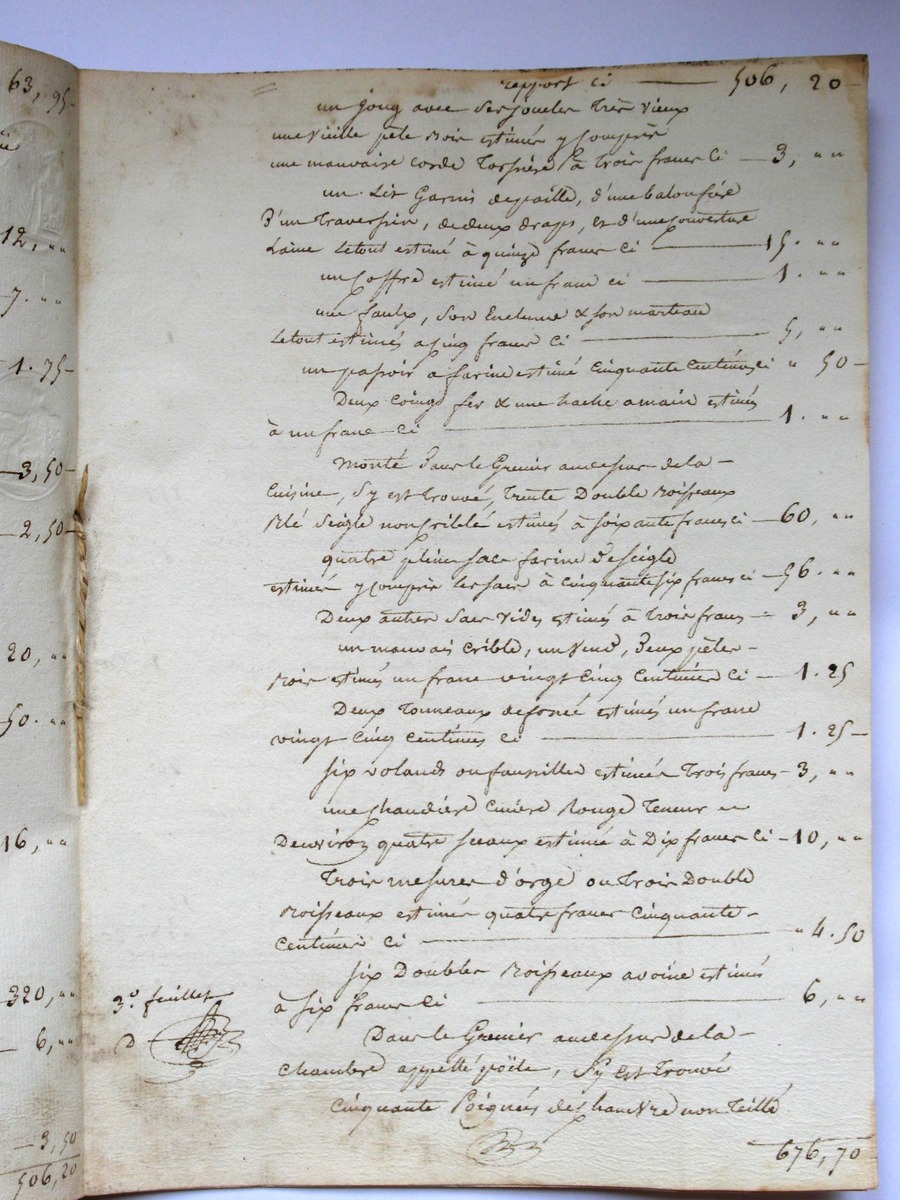 63, 95-
12, " "
7. " "
1. 75-
3, 50-
2, 50-
20, " "
50. " "
16, " "
320, " "
6, " "
3, 50
506, 20
report ci 506, 20-
un joug avec ses jouclet très vieux
une vieille pèle bois estimés y compris
une mauvaise corde à trois francs ci 3, " "
un Lit Garni de paille, d'une baloufière
d'un traversin, de deux draps, et d'une couverture
Laine le tout estimé à quinze francs ci 15. " "
un Coffre estimé un franc ci 1. " "
une faulx, son Enclume & son marteau
le tout estimés a cinq francs ci 5, " "
un passoir a farine estimé cinquante centimes ci " 50-
Deux Coings fer & une hache a main estimés
à un franc ci 1. " "
Monté dans le Grenier au dessus de la -
Cuisine, s'y est trouvé, trente Double Boisseaux
Blé Seigle non criblé estimés à soixante francs ci 60, " "
quatre pleins sacs farine de seigle
estimés y compris les sacs à cinquante six francs ci 56. " "
Deux autres sacs vides estimés à trois francs 3, " "
un mauvais crible, un Vend, deux pèles -
Bois estimés un franc vingt cinq centimes ci 1. 25
Deux Tonneaux defoncé estimés un franc
vingt cinq centimes ci 1. 25-
Six volands ou faussilles estimés trois francs 3, " "
une chaudière cuivre Rouge teneur
D'environ quatre sceaux estimée à Dix francs ci 10, " "
trois mesures d'orge ou trois Double
Boisseaux estimés quatre francs cinquante -
centimes ci " 4. 50
Six Doubles Boisseaux avoine estimés
à six francs ci 6, " "
3e. feuillet
D
Dans le Grenier au dessus de la -
chambre appellé poële, s'y est trouvé
cinquante Poignés de chanvre non teillé
676, 70